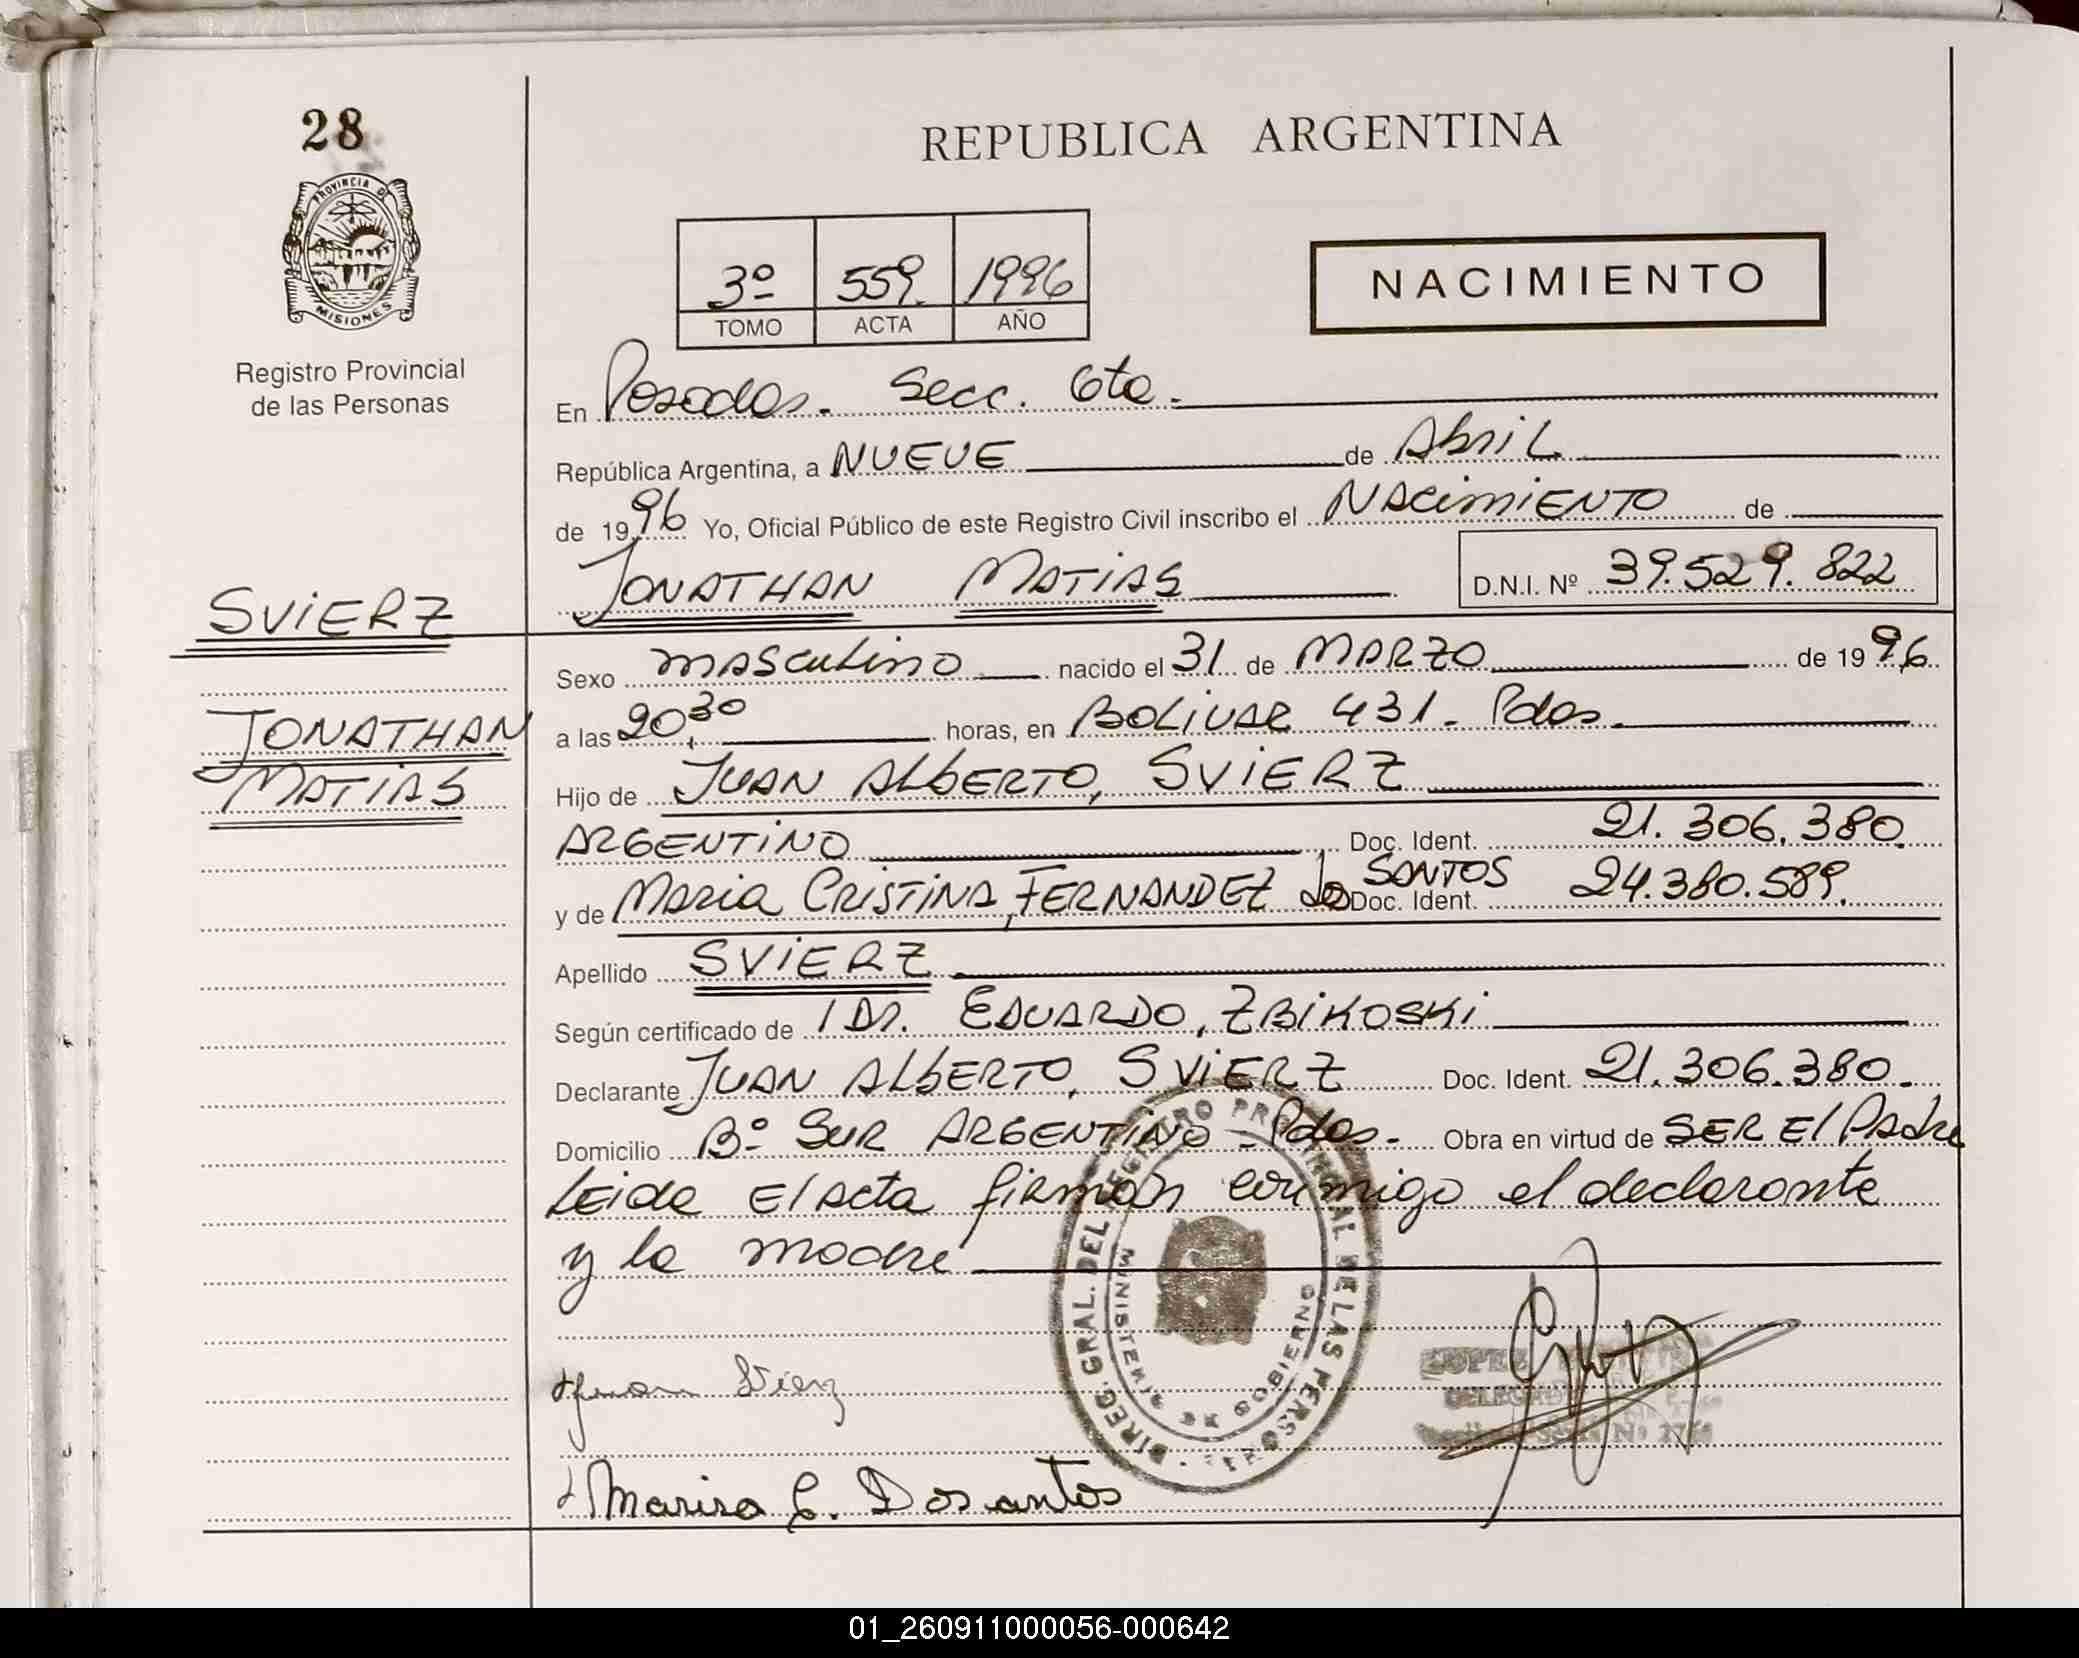 28
PROVINCIA D
MISIONES
Registro Provincial
de las Personas
REPUBLICA ARGENTINA
3º 559. 1996
TOMO ACTA AÑO
NACIMIENTO
En Posadas. Secc. 6ta.
República Argentina, a NUEVE de Abril
de 1996 Yo, Oficial Público de este Registro Civil inscribo el NAcimiENTO de
JONATHAN MATIAS D.N.I. Nº 39.529.822
SViERZ
Sexo mAsculino nacido el 31 de MARZO de 1996
JONATHAN
MATIAS
a las 20,30 horas, en BOLIVAR 431. Pdas.
Hijo de JUAN ALbERTO, SViERZ
ARGENTINO Doc. Ident. 21.306.380
y de MARIA CRISTINA, FERNANDEZ dos SANTOS Doc. Ident. 24.380.589.
Apellido SViERZ
Según certificado de 1 Dr. EDUARDO, ZBIKOSKI
Declarante JUAN ALbERTO, SViERZ Doc. Ident. 21.306.380.
Domicilio Bº SUR ARGENTINO - Pdas. Obra en virtud de SER El PAdre
LEida El Acta firman conmigo el declarante
y la madre
DIREG. GRAL. DEL REGISTRO PROVINCIAL DE LAS PERSONAS
MINISTERIO DE GOBIERNO
LOPEZ
Marisa C. Dosantos
01_260911000056-000642